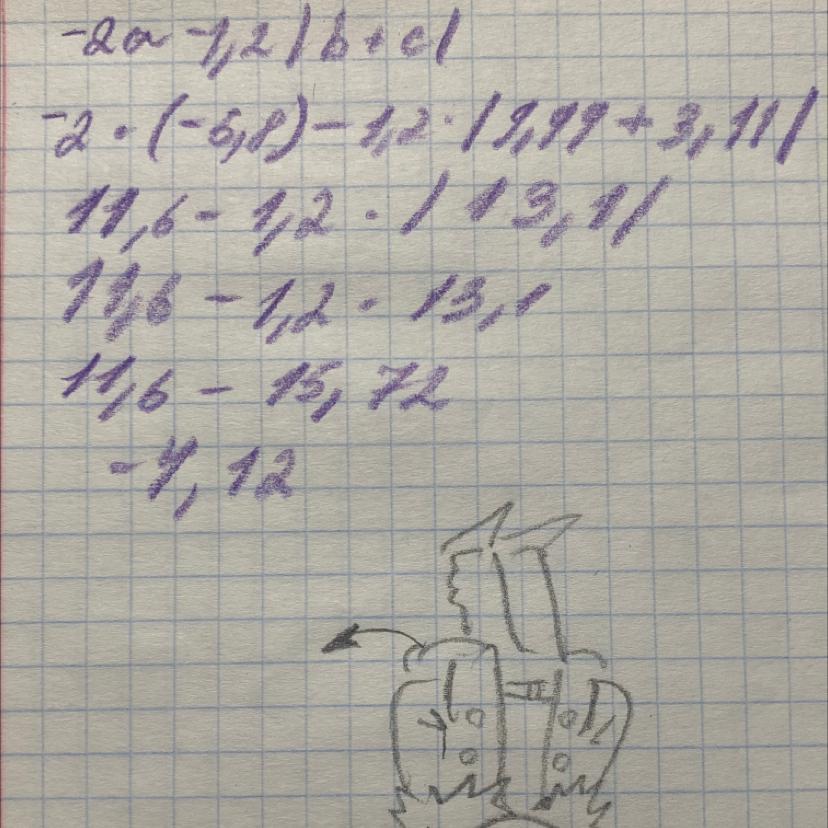 -2a - 1,2 |b + c|
-2 · (-5,8) - 1,2 · |9,99 + 3,11|
11,6 - 1,2 · |13,1|
11,6 - 1,2 · 13,1
11,6 - 15,72
-4,12